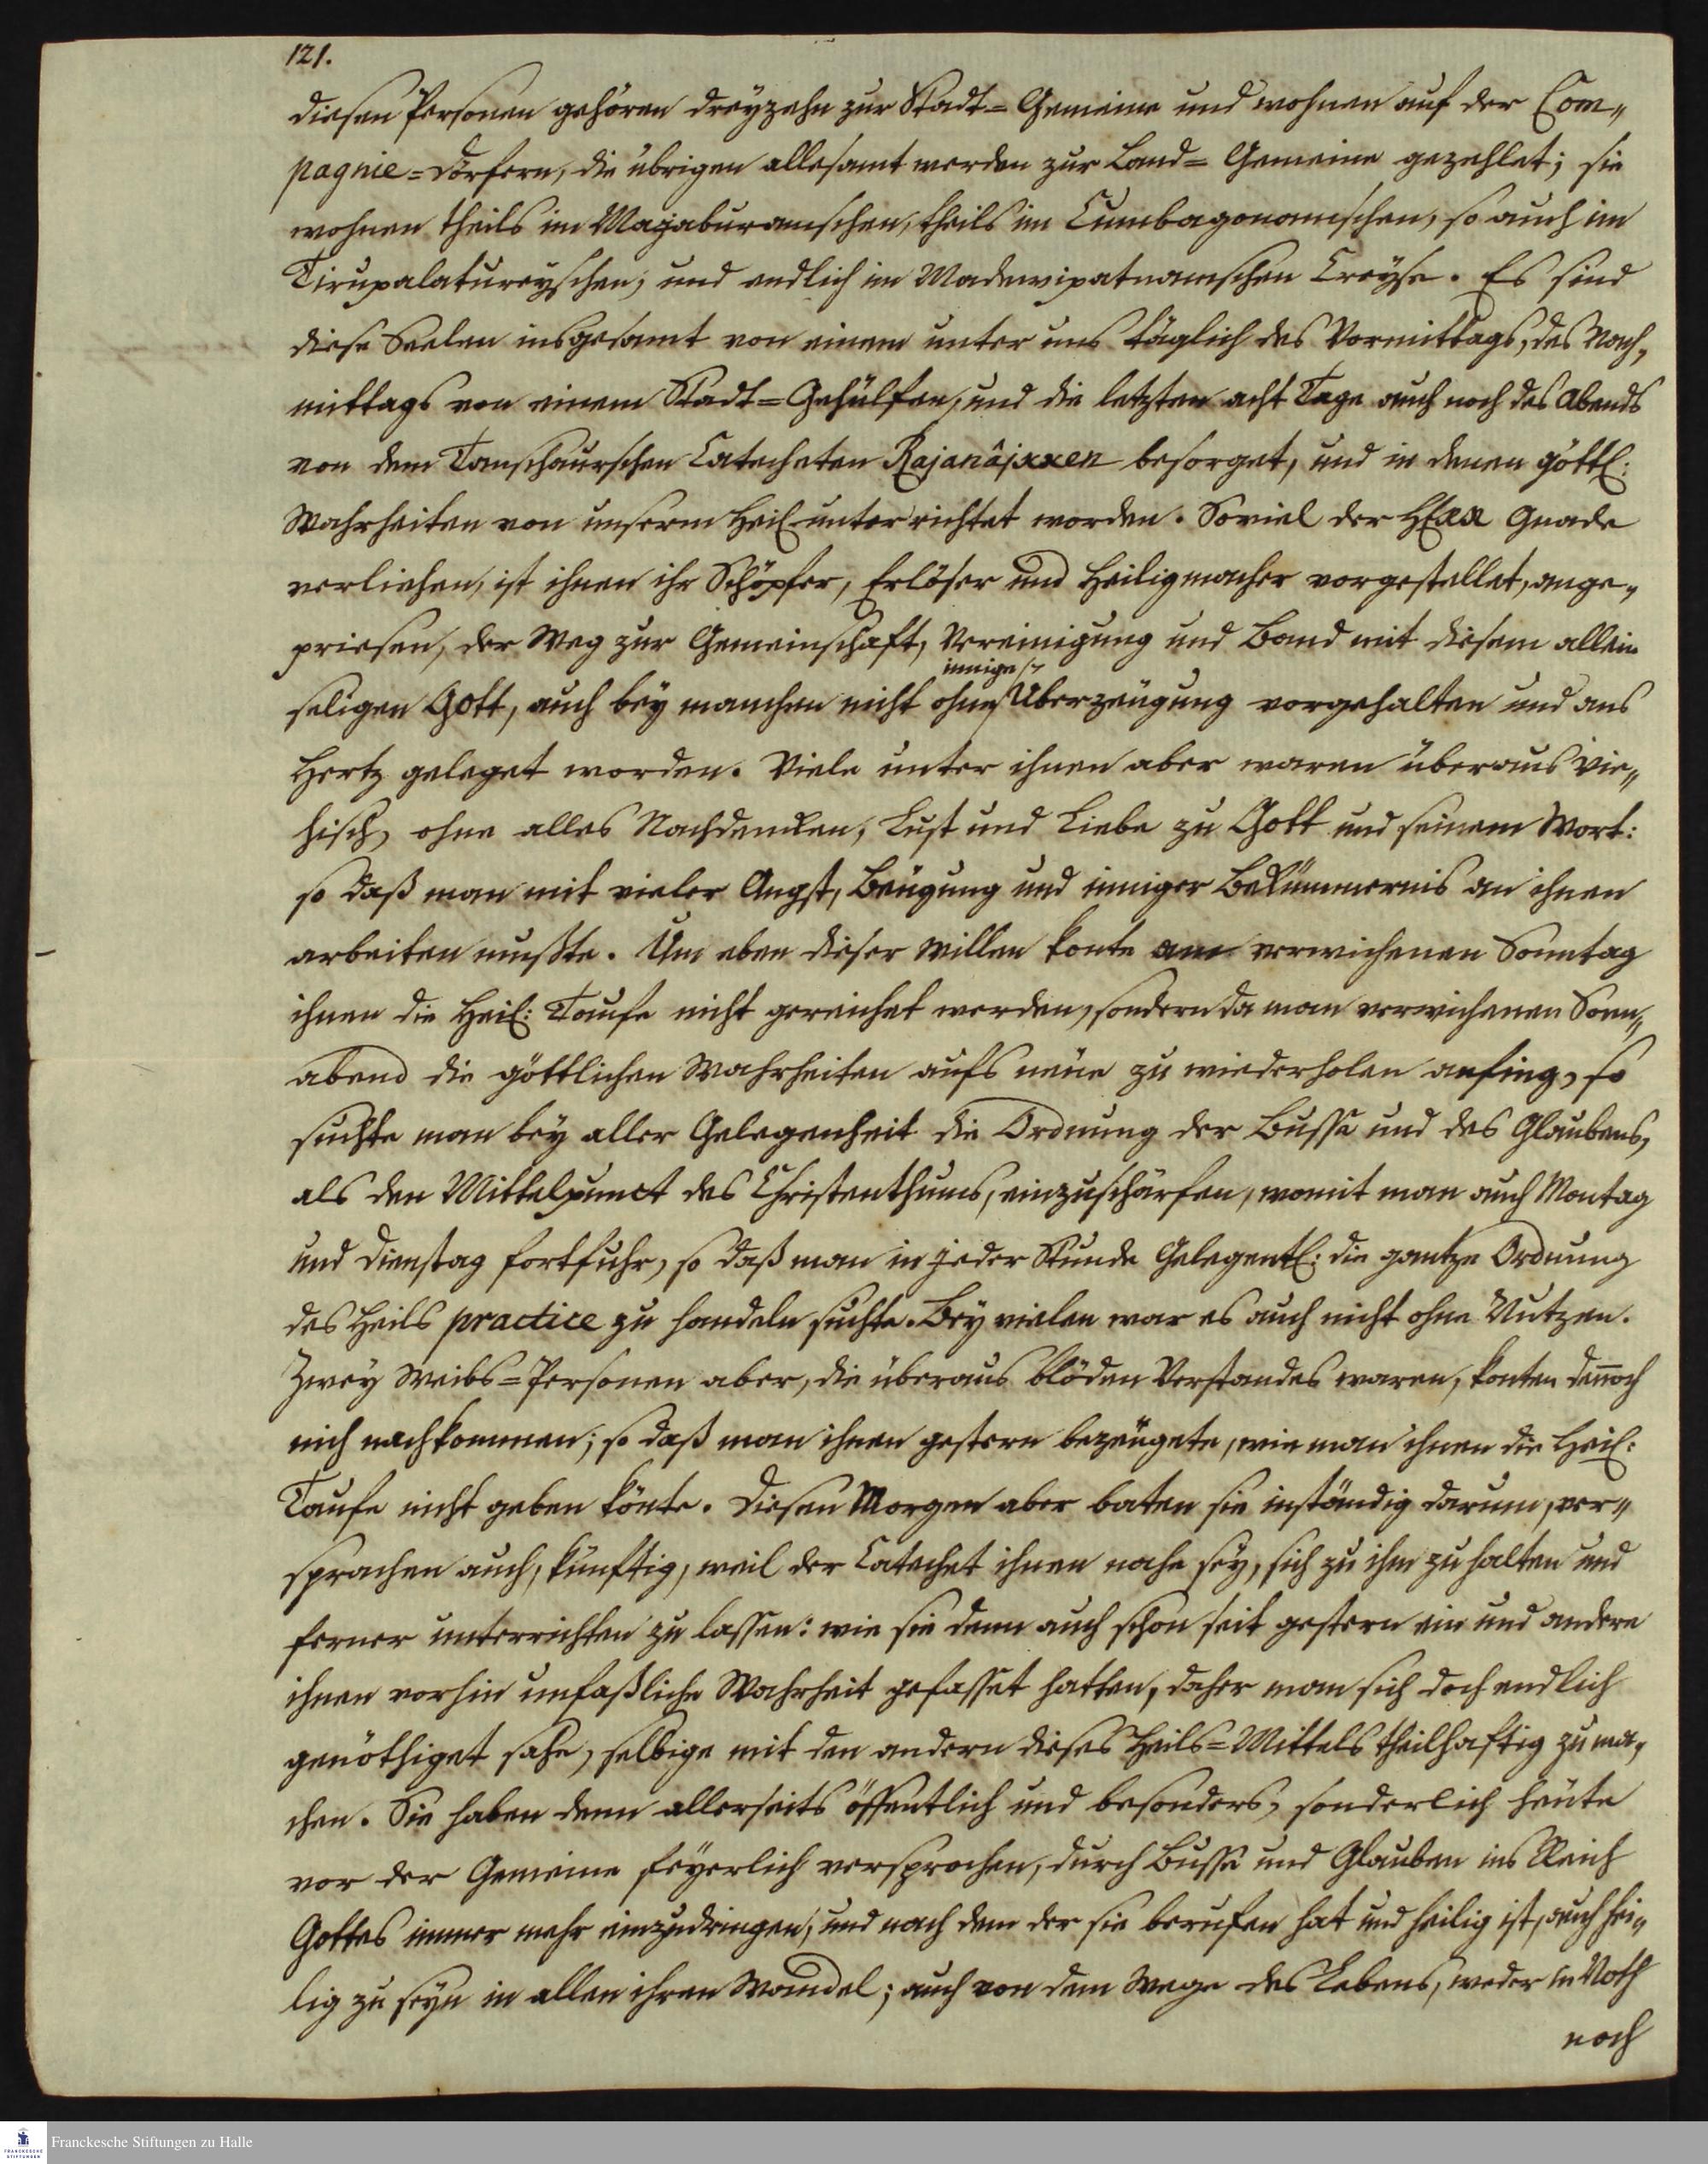 121.
diesen Personen gehören dreyzehn zur Stadt=Gemeine und wohnen auf der Com„
pagnie=Dörfern, die übrigen allesamt werden zur Land=Gemeine gezehlet; sie
wohnen theils im Majaburamschen, theils im Cumbagonamschen, so auch im
Tirupalatureyschen, und endlich im Madewipatnamschen Creyse. Es sind
diese Seelen insgesamt von einem unter uns täglich des Vormittags, des Nach„
mittags von einem Stadt=Gehülfen, und die letzten acht Tage auch noch des Abends
von dem Tanschaurschen Catecheten Rajanâjxxen besorget, und in denen göttl:
Wahrheiten von unserm Heil unterrichtet worden. Soviel der HErr Gnade
verliehen, ist ihnen ihr Schöpfer, Erlöser und Heiligmacher vorgestellet, ange„
priesen, der Weg zur Gemeinschaft, Vereinigung und Band mit diesem allein
seligen Gott, auch bey manchen nicht ohne innige Überzeugung vorgehalten und ans
Hertz geleget worden. Viele unter ihnen aber waren überaus vie„
hisch, ohne alles Nachdencken, Lust und Liebe zu Gott und seinem Wort:
so daß man mit vieler Angst, Beugung und inniger Bekümmernis an ihnen
arbeiten mußte. Um eben dieser willen konte am verwichenen Sonntag
ihnen die Heil: Taufe nicht gereichet werden, sondern da man verwichenen Sonn„
abend die göttlichen Wahrheiten aufs neue zu wiederholen anfing, so
suchte man bey aller Gelegenheit die Ordnung der Busse und des Glaubens,
als den Mittelpunct des Christenthums, einzuschärfen, womit man auch Montag
und Dienstag fortfuhr, so daß man in jeder Stunde Gelegentl: die gantze Ordnung
des Heils practice zu handeln suchte. Bey vielen war es auch nicht ohne Nutzen.
Zwey Weibs=Personen aber, die überaus blöden Verstandes waren, konten dennoch
nich nachkommen; so daß man ihnen gestern bezeugete, wie man ihnen die Heil:
Taufe nicht geben könte. Diesen Morgen aber baten sie inständig darum, ver„
sprachen auch, künftig, weil der Catechet ihnen nahe sey, sich zu ihm zu halten und
ferner unterrichten zu lassen: wie sie denn auch schon seit gestern ein und andere
ihnen vorhin unfaßliche Wahrheit gefasset hatten, daher man sich doch endlich
genöthiget sahe, selbige mit den andern dieses Heils=Mittels theilhaftig zu ma„
chen. Sie haben denn allerseits öffentlich und besonders, sonderlich heute
vor der Gemeine feyerlich versprochen, durch Busse und Glauben ins Reich
Gottes immer mehr einzudringen, und nach dem der sie berufen hat und heilig ist, auch hei„
lig zu seyn in allen ihren Wandel; auch von dem Wege des Lebens, weder in Noth
noch
Franckesche Stiftungen zu Halle